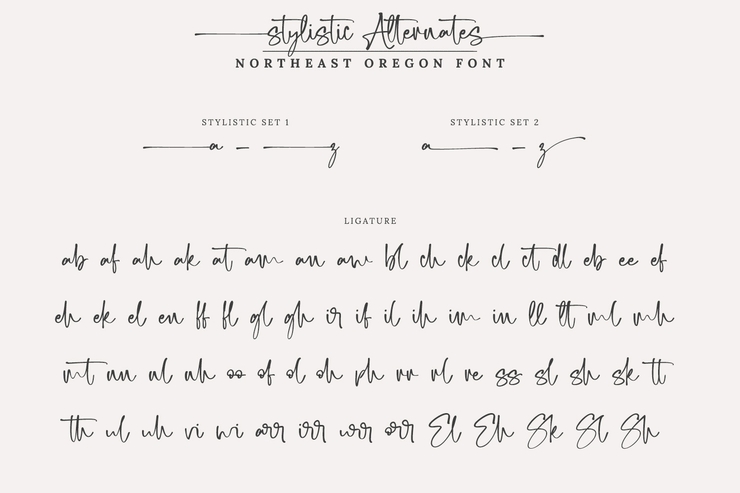 stylistic Alternates
NORTHEAST OREGON FONT
STYLISTIC SET 1 STYLISTIC SET 2
a – z a – z
LIGATURE
ab af ah ak at am an aw bl ch ck cl ct dl eb ee ef
eh ek el en ff fl gl gh ir if il ih im in ll lt ml mh
mt nn nl nh oo of ol oh ph rr rl re ss sl sh sk tt
th ul uh vi wi arr irr urr orr El Eh Sk Sl Sh